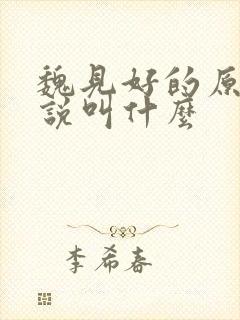 魏見好的原
說叫什麼
李希春